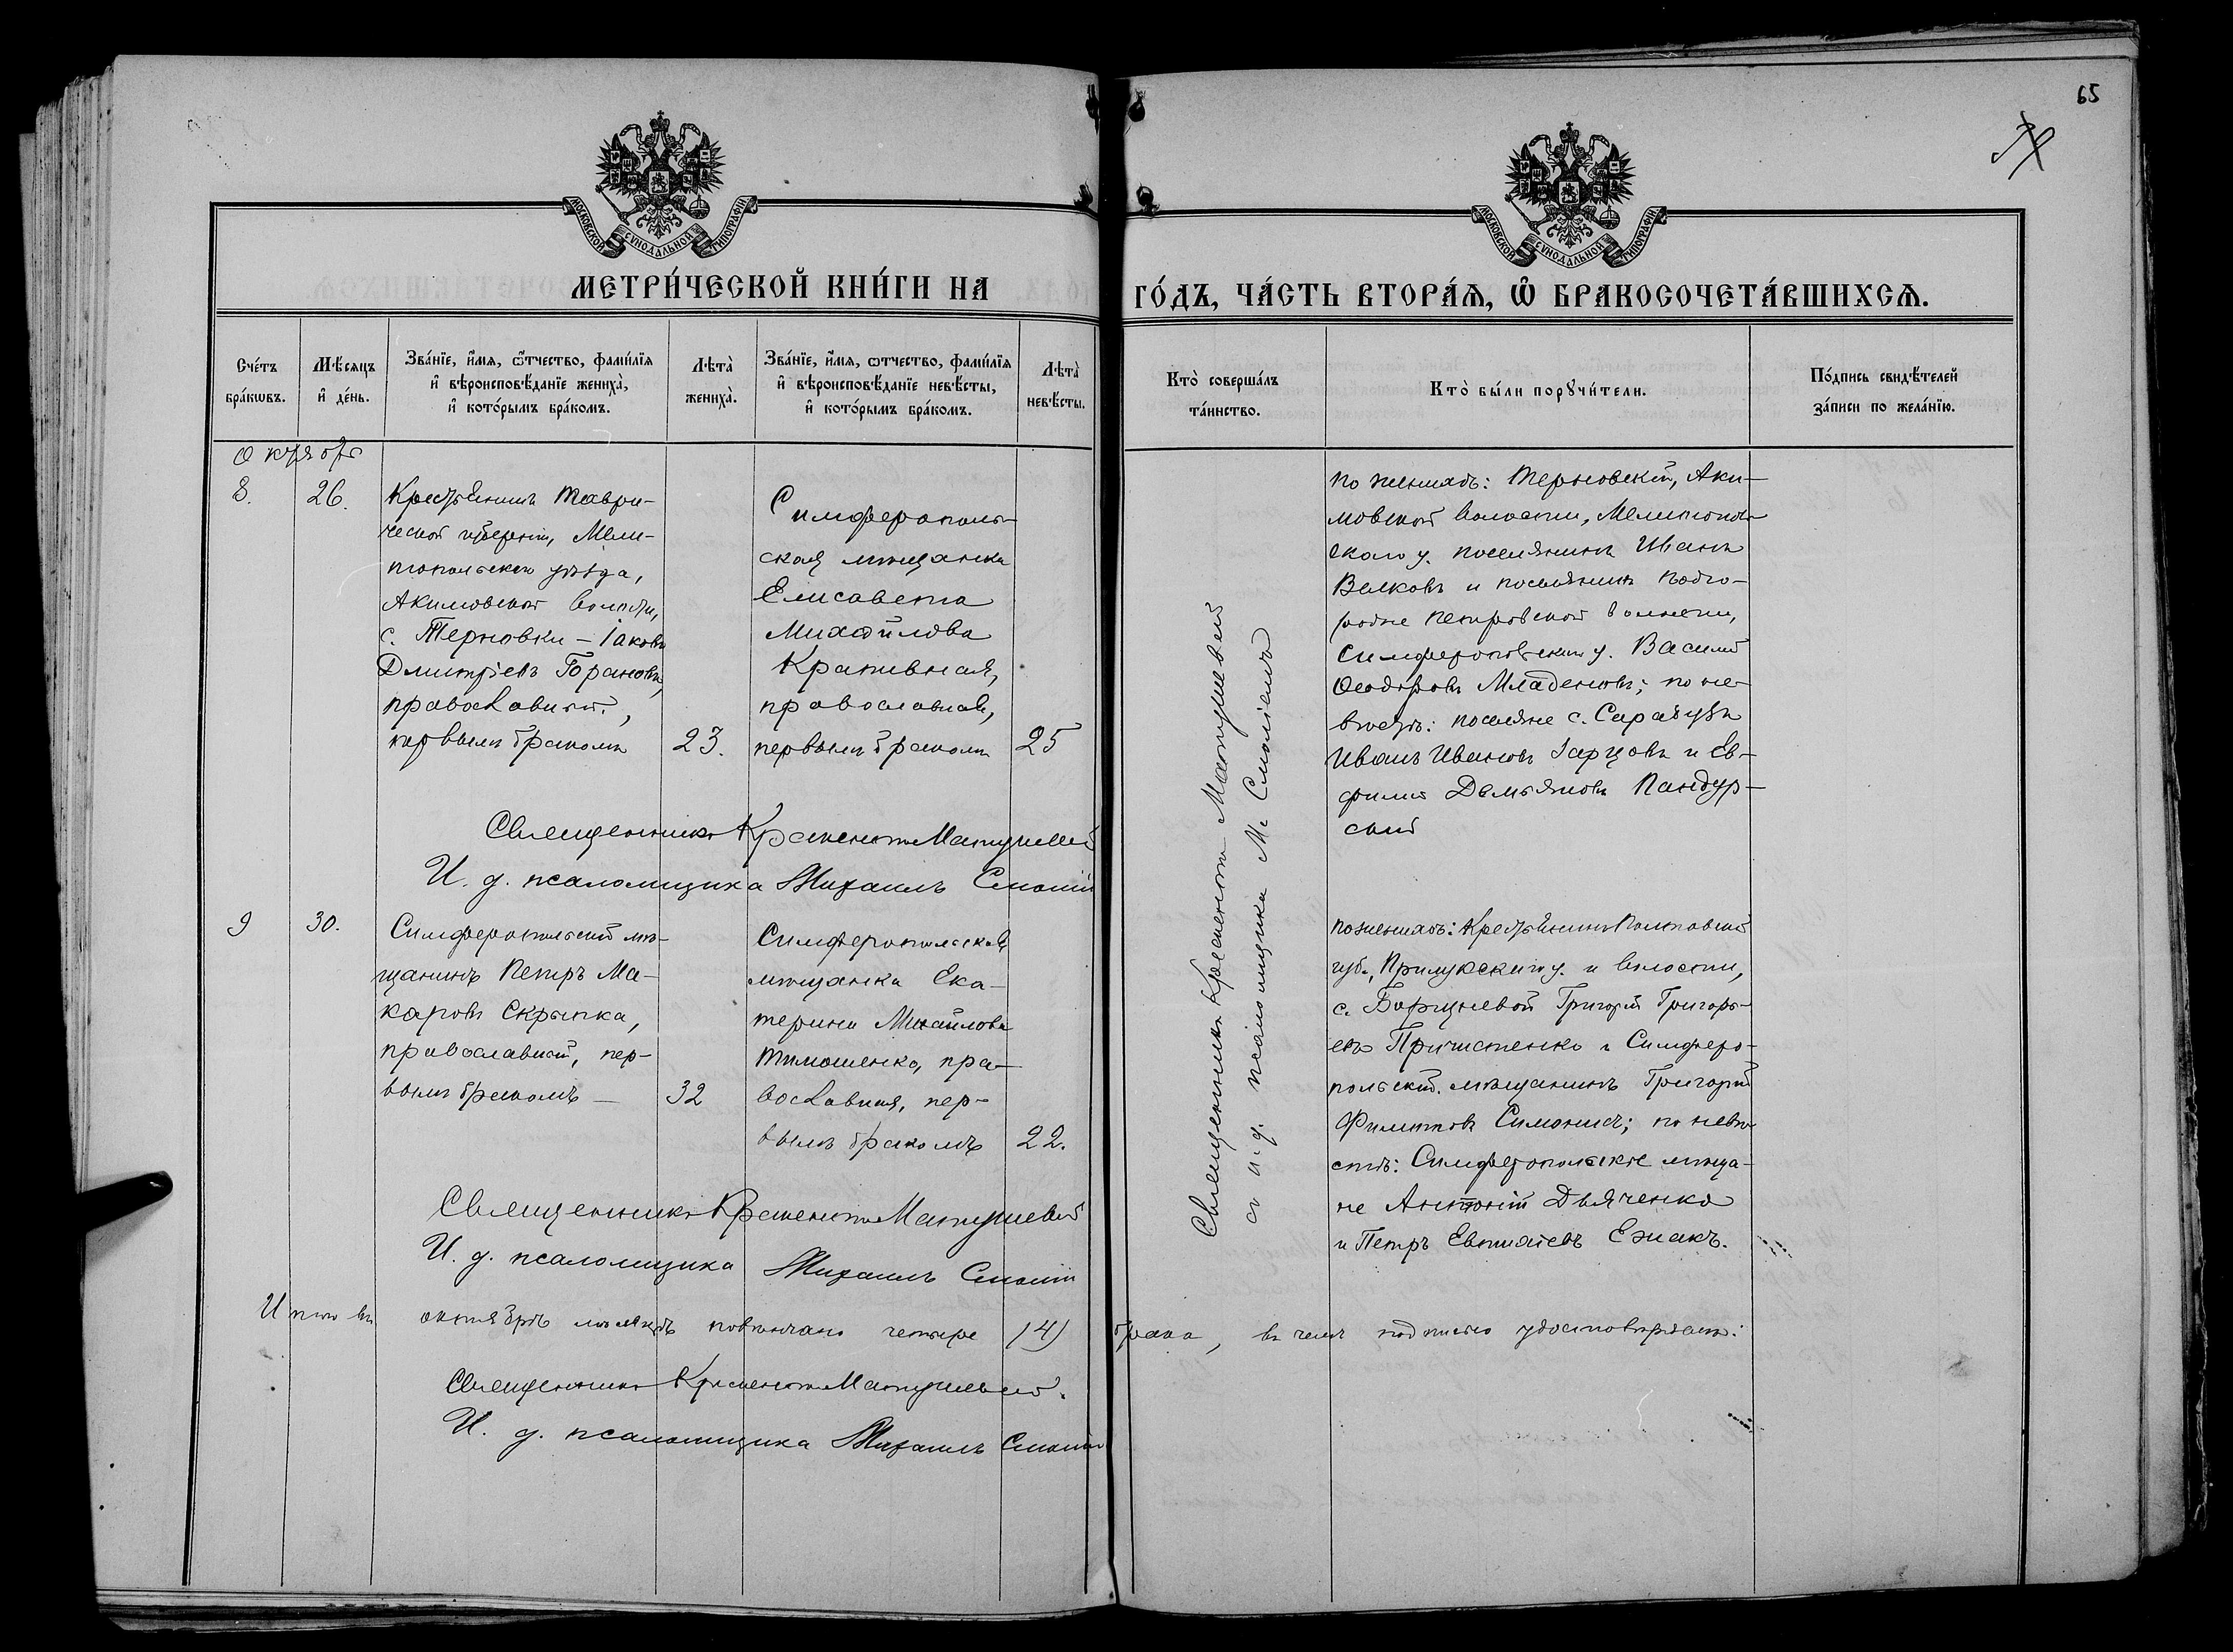 65
МОСКОВСКОЙ СѴНОДАЛЬНОЙ ТИПОГРАФІИ
МОСКОВСКОЙ СѴНОДАЛЬНОЙ ТИПОГРАФІИ
МЕТРИ́ЧЕСКОЙ КНИ́ГИ НА
ГО́ДЪ, ЧА́СТЬ ВТОРА́Я, Ѽ БРАКОСОЧЕТА́ВШИХСЯ.
Сче́тъ бра́кѡвъ.
Мѣ́сяцъ и҆ де́нь.
Зва́нїе, и҆́мя, ѻ҆́тчество, фами́лїя
и҆ вѣроисповѣ́данїе жениха̀,
и҆ кото́рымъ бра́комъ.
Лѣта̀ жениха̀.
Зва́нїе, и҆́мя, ѻтчество, фами́лїя
и҆ вѣроисповѣ́данїе невѣ́сты,
и҆ кото́рымъ бра́комъ.
Лѣта̀ невѣ́сты.
Кто̀ соверша́лъ та́инство.
Кто̀ бы́ли порꙋчи́тели.
По́дпись свидѣ́телей
за́писи по жела́нїю.
Октябрь
8.
26.
Крестьянинъ Таври-
ческой губерніи, Мели-
топольскаго уѣзда,
Акимовской волости,
с. Терновки – Іаковъ
Дмитріевъ Борановъ,
православный,
первымъ бракомъ
23.
Симферополь-
ская мѣщанка
Елисавета
Михайлова
Крапивная,
православная,
первымъ бракомъ
25
по женихѣ: Терновскій, Аки-
мовской волости, Мелитополь-
скаго у. поселянинъ Иванъ
Волковъ и поселянинъ Подго-
родне Петровской волости,
Симферопольскаго у. Василій
Ѳеодоровъ Младеновъ; по не-
вѣстѣ: поселяне с. Сарабузъ
Иванъ Ивановъ Гарцовъ и Ев-
фимій Демьяновъ Пандур-
скій
Священникъ Матушевскій
И. д. псаломщика Михаилъ
9
30.
Симферопольскій мѣ-
щанинъ Петръ Ма-
каровъ Скрыпка,
православный, пер-
вымъ бракомъ –
32
Симферопольская
мѣщанка Ека-
терина Михайлова
Тимошенко, пра-
вославная, пер-
вымъ бракомъ
22.
по женихѣ: Крестьянинъ Полтавской
губ., Прилукскаго у. и волости,
с. Григорій Григорь-
евъ Причистенко и Симферо-
польскій мѣщанинъ Григорій
Филиповъ; по невѣ-
стѣ: Симферопольскіе мѣща-
не Антоній Дьяченко
и Петръ Ежакъ.
Священникъ Матушевскій
и и. д. псаломщика М.
Священникъ Матушевскій
И. д. псаломщика Михаилъ
Итого въ октябрѣ мѣсяцѣ повѣнчано четыре (4) брака, въ чемъ подписью удостовѣряемъ:
Священникъ Матушевскій.
И. д. псаломщика Михаилъ